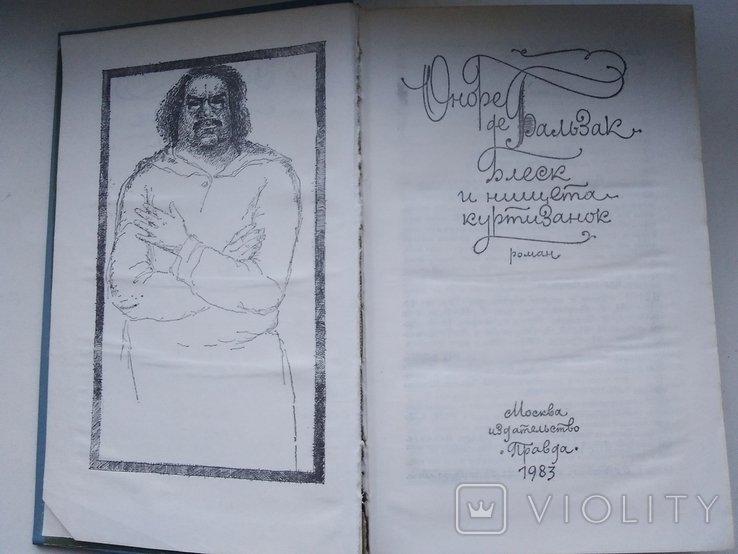 Оноре
де Бальзак
Блеск
и нищета
куртизанок
роман
Москва
издательство
„Правда“
1983
VIOLITY